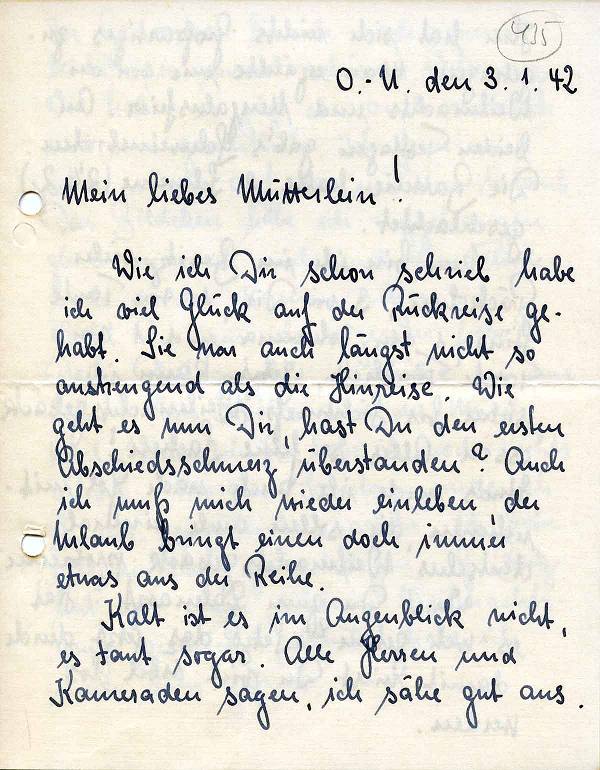 435
O.-U. den 3.1.42
Mein liebes Mütterlein!
Wie ich Dir schon schrieb habe
ich viel Glück auf der Rückreise ge-
habt. Sie war auch längst nicht so
anstrengend als die Hinreise. Wie
geht es nun Dir, hast Du den ersten
Abschiedsschmerz überstanden? Auch
ich muß mich wieder einleben, der
Urlaub bringt einen doch immer
etwas aus der Reihe.
Kalt ist es im Augenblick nicht,
es taut sogar. Alle Herren und
Kameraden sagen, ich sähe gut aus.